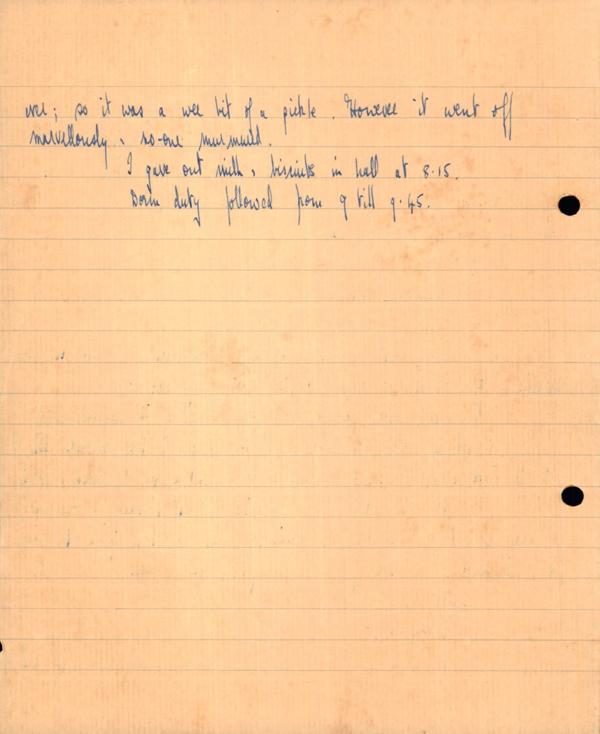 over; so it was a wee bit of a pickle. However it went off
marvellously & no-one murmured.
I gave out milk & biscuits in hall at 8.15.
Dorm duty followed from 9 till 9.45.